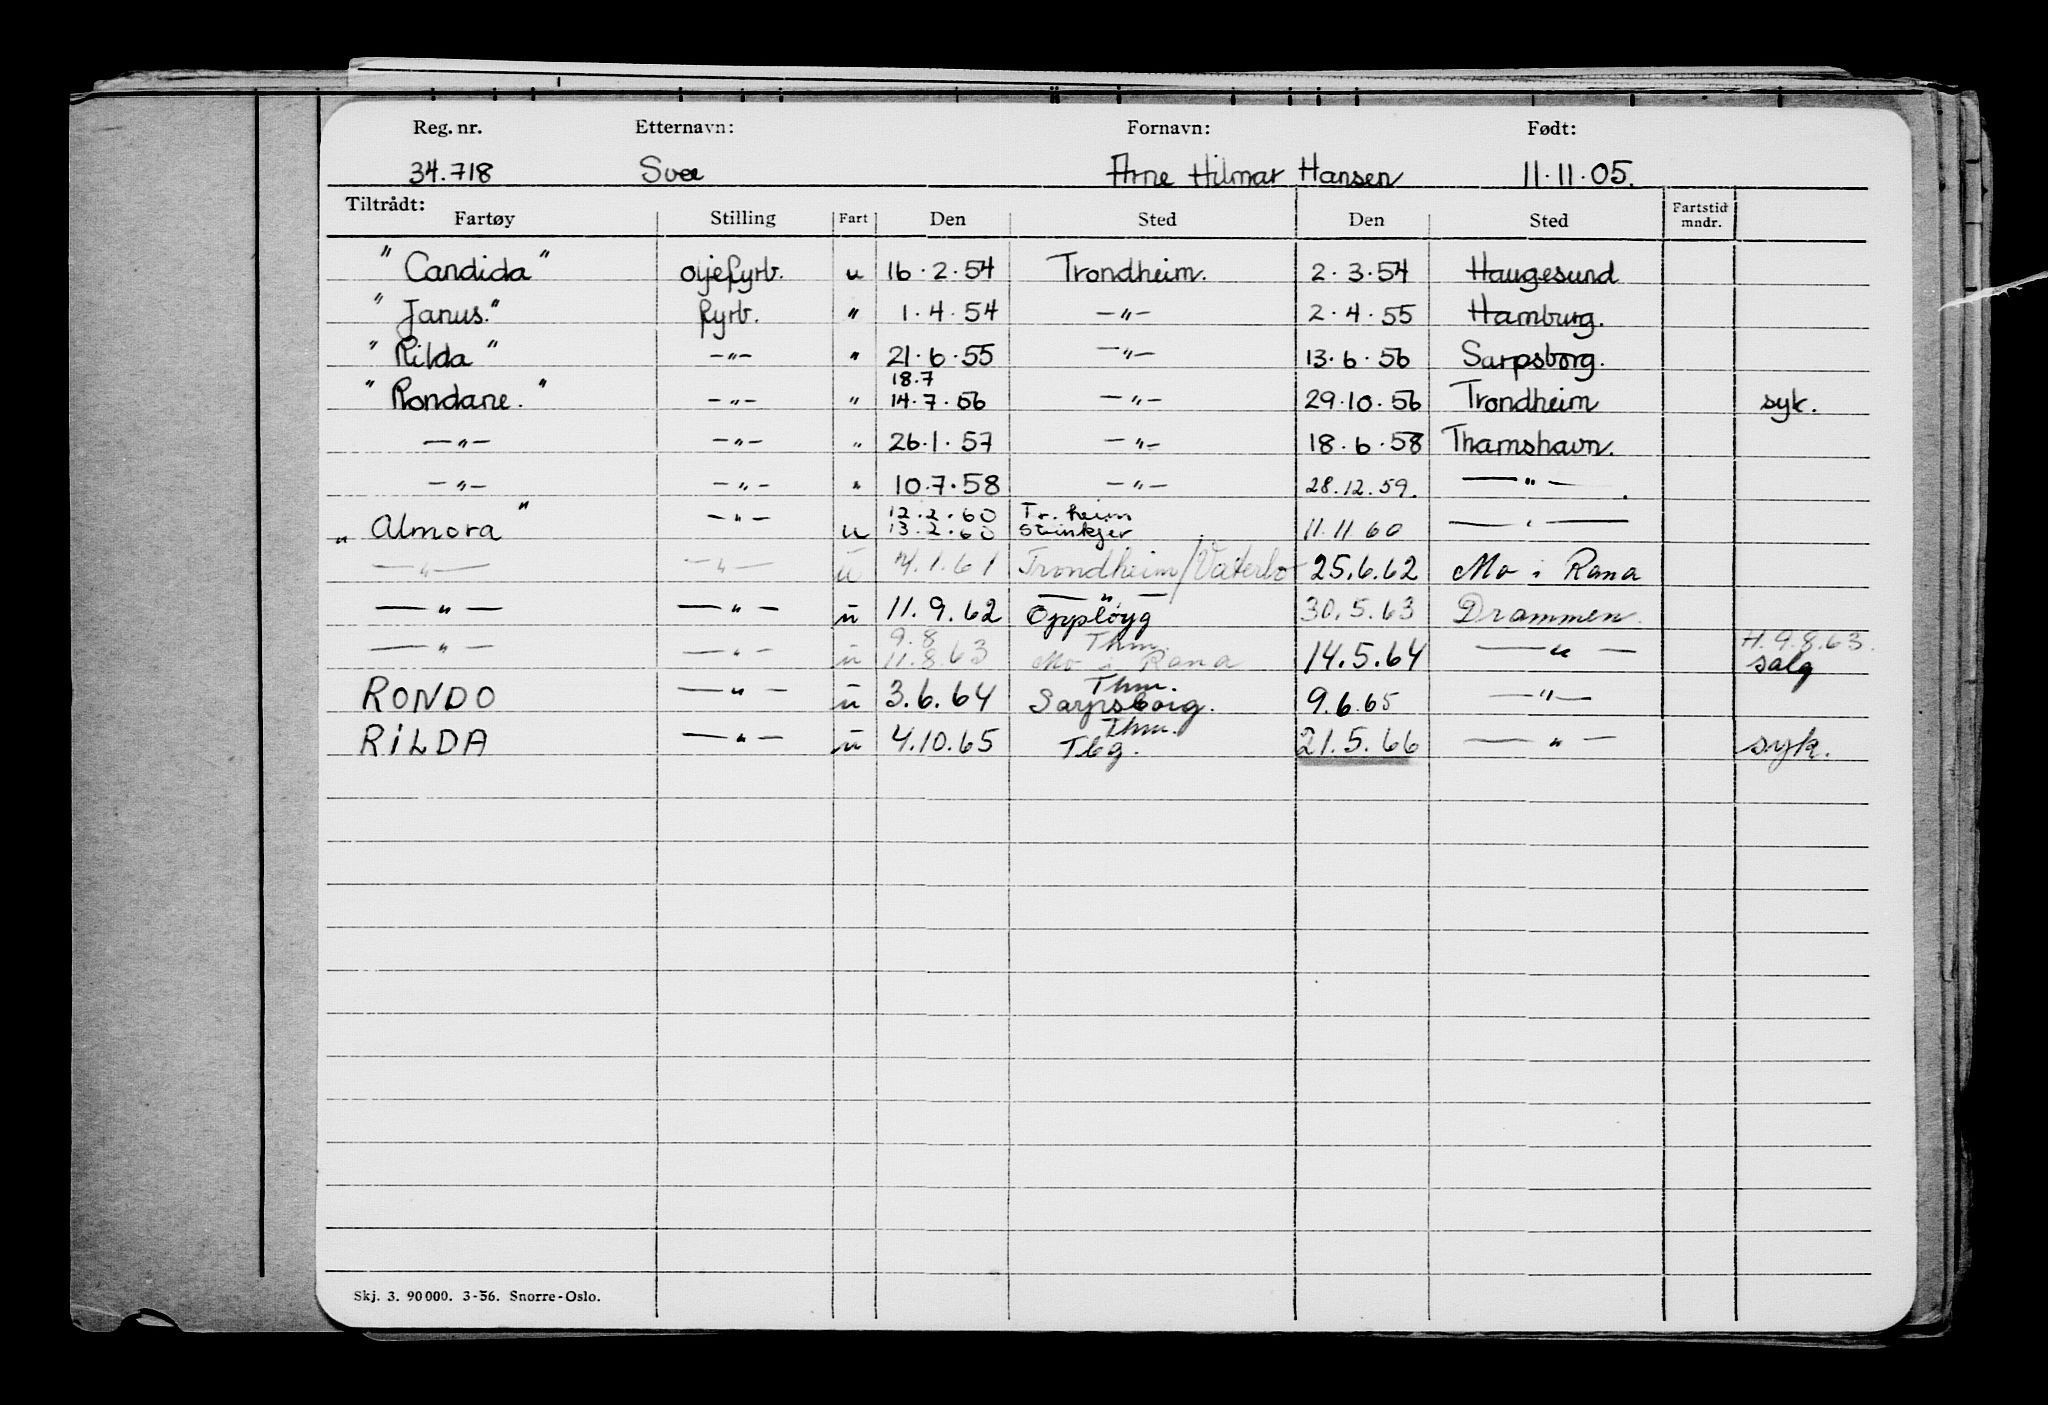 Reg. nr. Etternavn: Fornavn: Født:
34.718 Svee Arne Hilmar Hansen 11.11.05.
Tiltrådt:
Fartøy Stilling Fart Den Sted Den Sted Fartstid mndr.
"Candida" oljefyrb. u 16.2.54 Trondheim. 2.3.54 Haugesund
"Janus." fyrb. " 1.4.54 —"— 2.4.55 Hamburg.
"Rilda" —"— " 21.6.55 —"— 13.6.56 Sarpsborg.
18.7
"Rondane." —"— " 14.7.56 —"— 29.10.56 Trondheim syk.
—"— —"— " 26.1.57 —"— 18.6.58 Thamshavn.
—"— —"— " 10.7.58 —"— 28.12.59. —"—.
12.2.60 Tr.heim
"Almora" —"— u 13.2.60 Steinkjer 11.11.60 —"—
—"— —"— u 4.1.61 Trondheim/Vaterlo 25.6.62 Mo i Rana
—"—
—"— —"— u 11.9.62 Oppløyg 30.5.63 Drammen.
9.8 Thm. H.9.8.63.
—"— —"— u 11.8.63 Mo i Rana 14.5.64 —"— salg
Thm.
RONDO —"— u 3.6.64 Sarpsborg. 9.6.65 —"—
Thm.
RILDA —"— u 4.10.65 Tbg. 21.5.66 —"— syk.
Skj. 3. 90 000. 3-56. Snorre-Oslo.